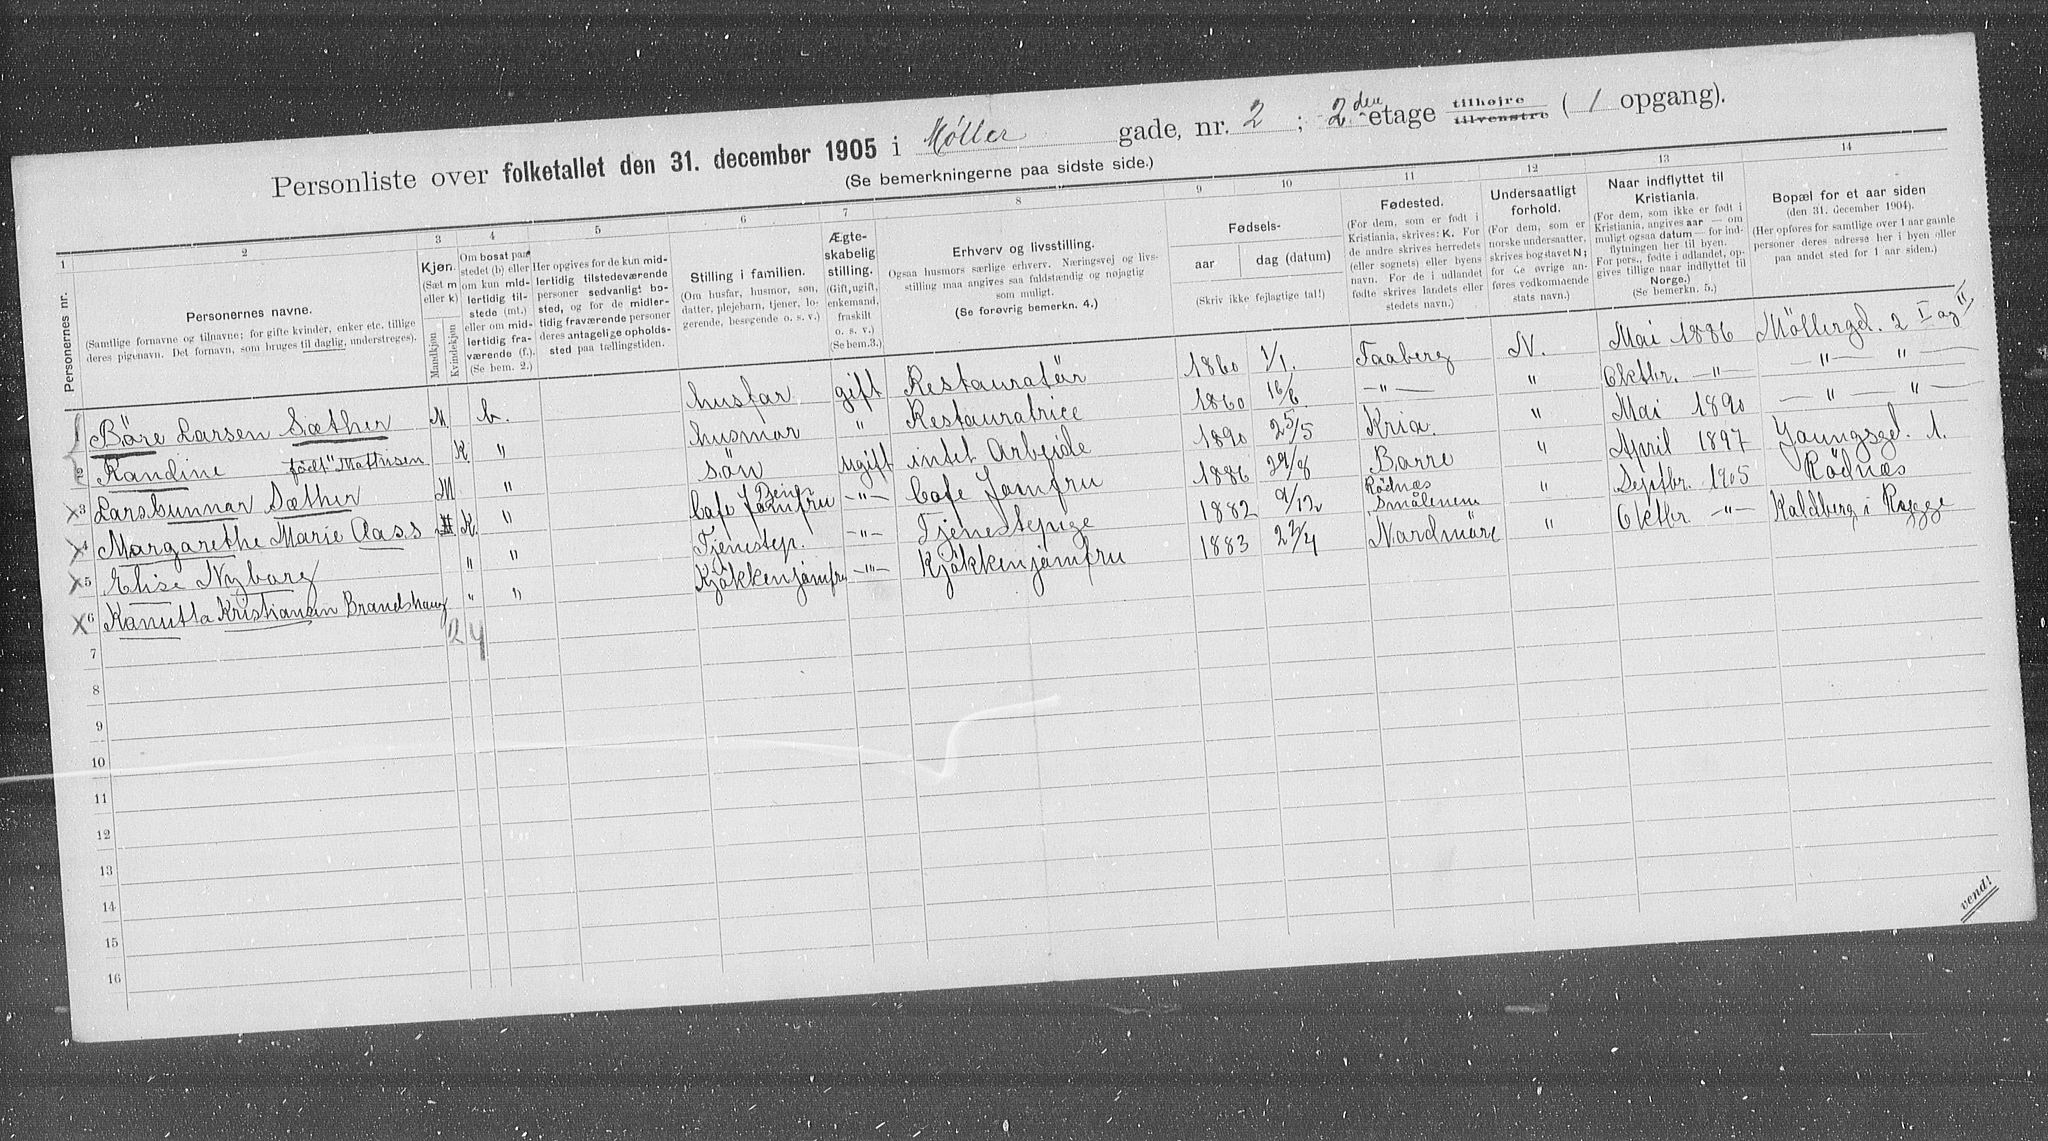 Personliste over folketallet den 31. december 1905 i Møller gade, nr. 2 ; 2 den etage tilhøjre tilvenstre ( 1 opgang).
(Se bemerkningerne paa sidste side.)
1 2 3 4 5 6 7 8 9 10 11 12 13 14
Personernes nr.
Personernes navne.
(Samtlige fornavne og tilnavne; for gifte kvinder, enker etc. tillige
deres pigenavn. Det fornavn, som bruges til daglig, understreges).
Kjøn.
(Sæt m
eller k)
Mandkjøn
Kvindekjøn
Om bosat paa
stedet (b) eller
om kun mid-
lertidig til-
stede (mt.)
eller om mid-
lertidig fra-
værende (f.).
(Se bem. 2.)
Her opgives for de kun mid-
lertidig tilstedeværende
personer sedvanligt bo-
sted, og for de midler-
tidig fraværende personer
deres antagelige opholds-
sted paa tællingstiden.
Stilling i familien.
(Om husfar, husmor, søn,
datter, plejebarn, tjener, lo-
gerende, besøgende o. s. v.)
Ægte-
skabelig
stilling.
(Gift, ugift,
enkemand,
fraskilt
o. s. v.)
(Se bem. 3.)
Erhverv og livsstilling.
Ogsaa husmors særlige erhverv. Næringsvej og livs-
stilling maa angives saa fuldstændig og nøjagtig
som muligt.
(Se forøvrig bemerkn. 4.)
Fødsels-
aar
dag (datum)
(Skriv ikke fejlagtige tal!)
Fødested.
(For dem, som er født i
Kristiania, skrives: K. For
de andre skrives herredets
(eller sognets) eller byens
navn. For de i udlandet
fødte skrives landets eller
stedets navn.)
Undersaatligt
forhold.
(For dem, som er
norske undersaatter,
skrives bogstavet N;
for de øvrige an-
føres vedkommende
stats navn.)
Naar indflyttet til
Kristiania.
(For dem, som ikke er født i
Kristiania, angives aar — om
muligt ogsaa datum — for ind-
flytningen her til byen.
For pers., fødte i udlandet, op-
gives tillige naar indflyttet til
Norge.)
(Se bemerkn. 5.)
Bopæl for et aar siden
(den 31. december 1904).
(Her opføres for samtlige over 1 aar gamle
personer deres adresse her i byen eller
paa andet sted for 1 aar siden.)
1 Böre Larsen Sæther M b. husfar gift Restauratör 1860 1/1. Faaberg N. Mai 1886 Möllergd. 2 I og II
2 Randine födt Mathisen K " husmor " Restauratrice 1860 16/6 —"— " Oktbr. —"— —"— "—
x3 Lars Gunnar Sæther M " sön ugift intet Arbeide 1890 25/5 Kria. " Mai 1890 —"— "—
x4 Margarethe Marie Aass K. " Cafe Jomfru —"— Cafe Jomfru 1886 29/8 Borre " April 1897 Youngsgd. 1.
x5 Elise Nyborg " " Tjenestep. —"— Tjenestepige 1882 9/12 Rödnæs Smålenene " Septbr. 1905 Rödnæs
x6 Kanutta Kristiansen Brandshaug " " Kjökkenjomfru —"— Kjökkenjomfru 1883 23/4 Nordmöre " Oktbr. —"— Kaldberg i Rygge
2 4
7
8
9
10
11
12
13
14
15
16
vend!